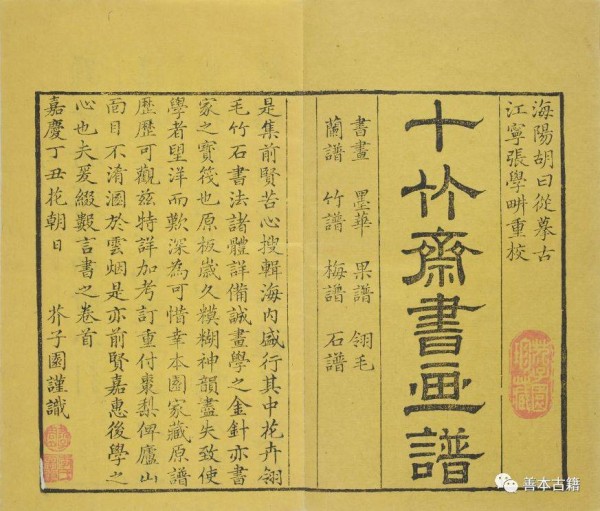 海陽胡曰從摹古
江寧張學畊重校
十竹齋書画譜
書畫 墨華 果譜 翎毛
蘭譜 竹譜 梅譜 石譜
是集前賢苦心搜輯海内盛行其中花卉翎
毛竹石書法諸體詳備誠畫學之金針亦書
家之寶筏也原板歲久糢糊神韻盡失致使
學者望洋而歎深為可惜幸本園家藏原譜
歷歷可觀茲特詳加考訂重付棗梨俾廬山
面目不淆溷於雲烟是亦前賢嘉惠後學之
心也夫爰綴數言書之卷首
嘉慶丁丑花朝日 芥子園謹識
善本古籍